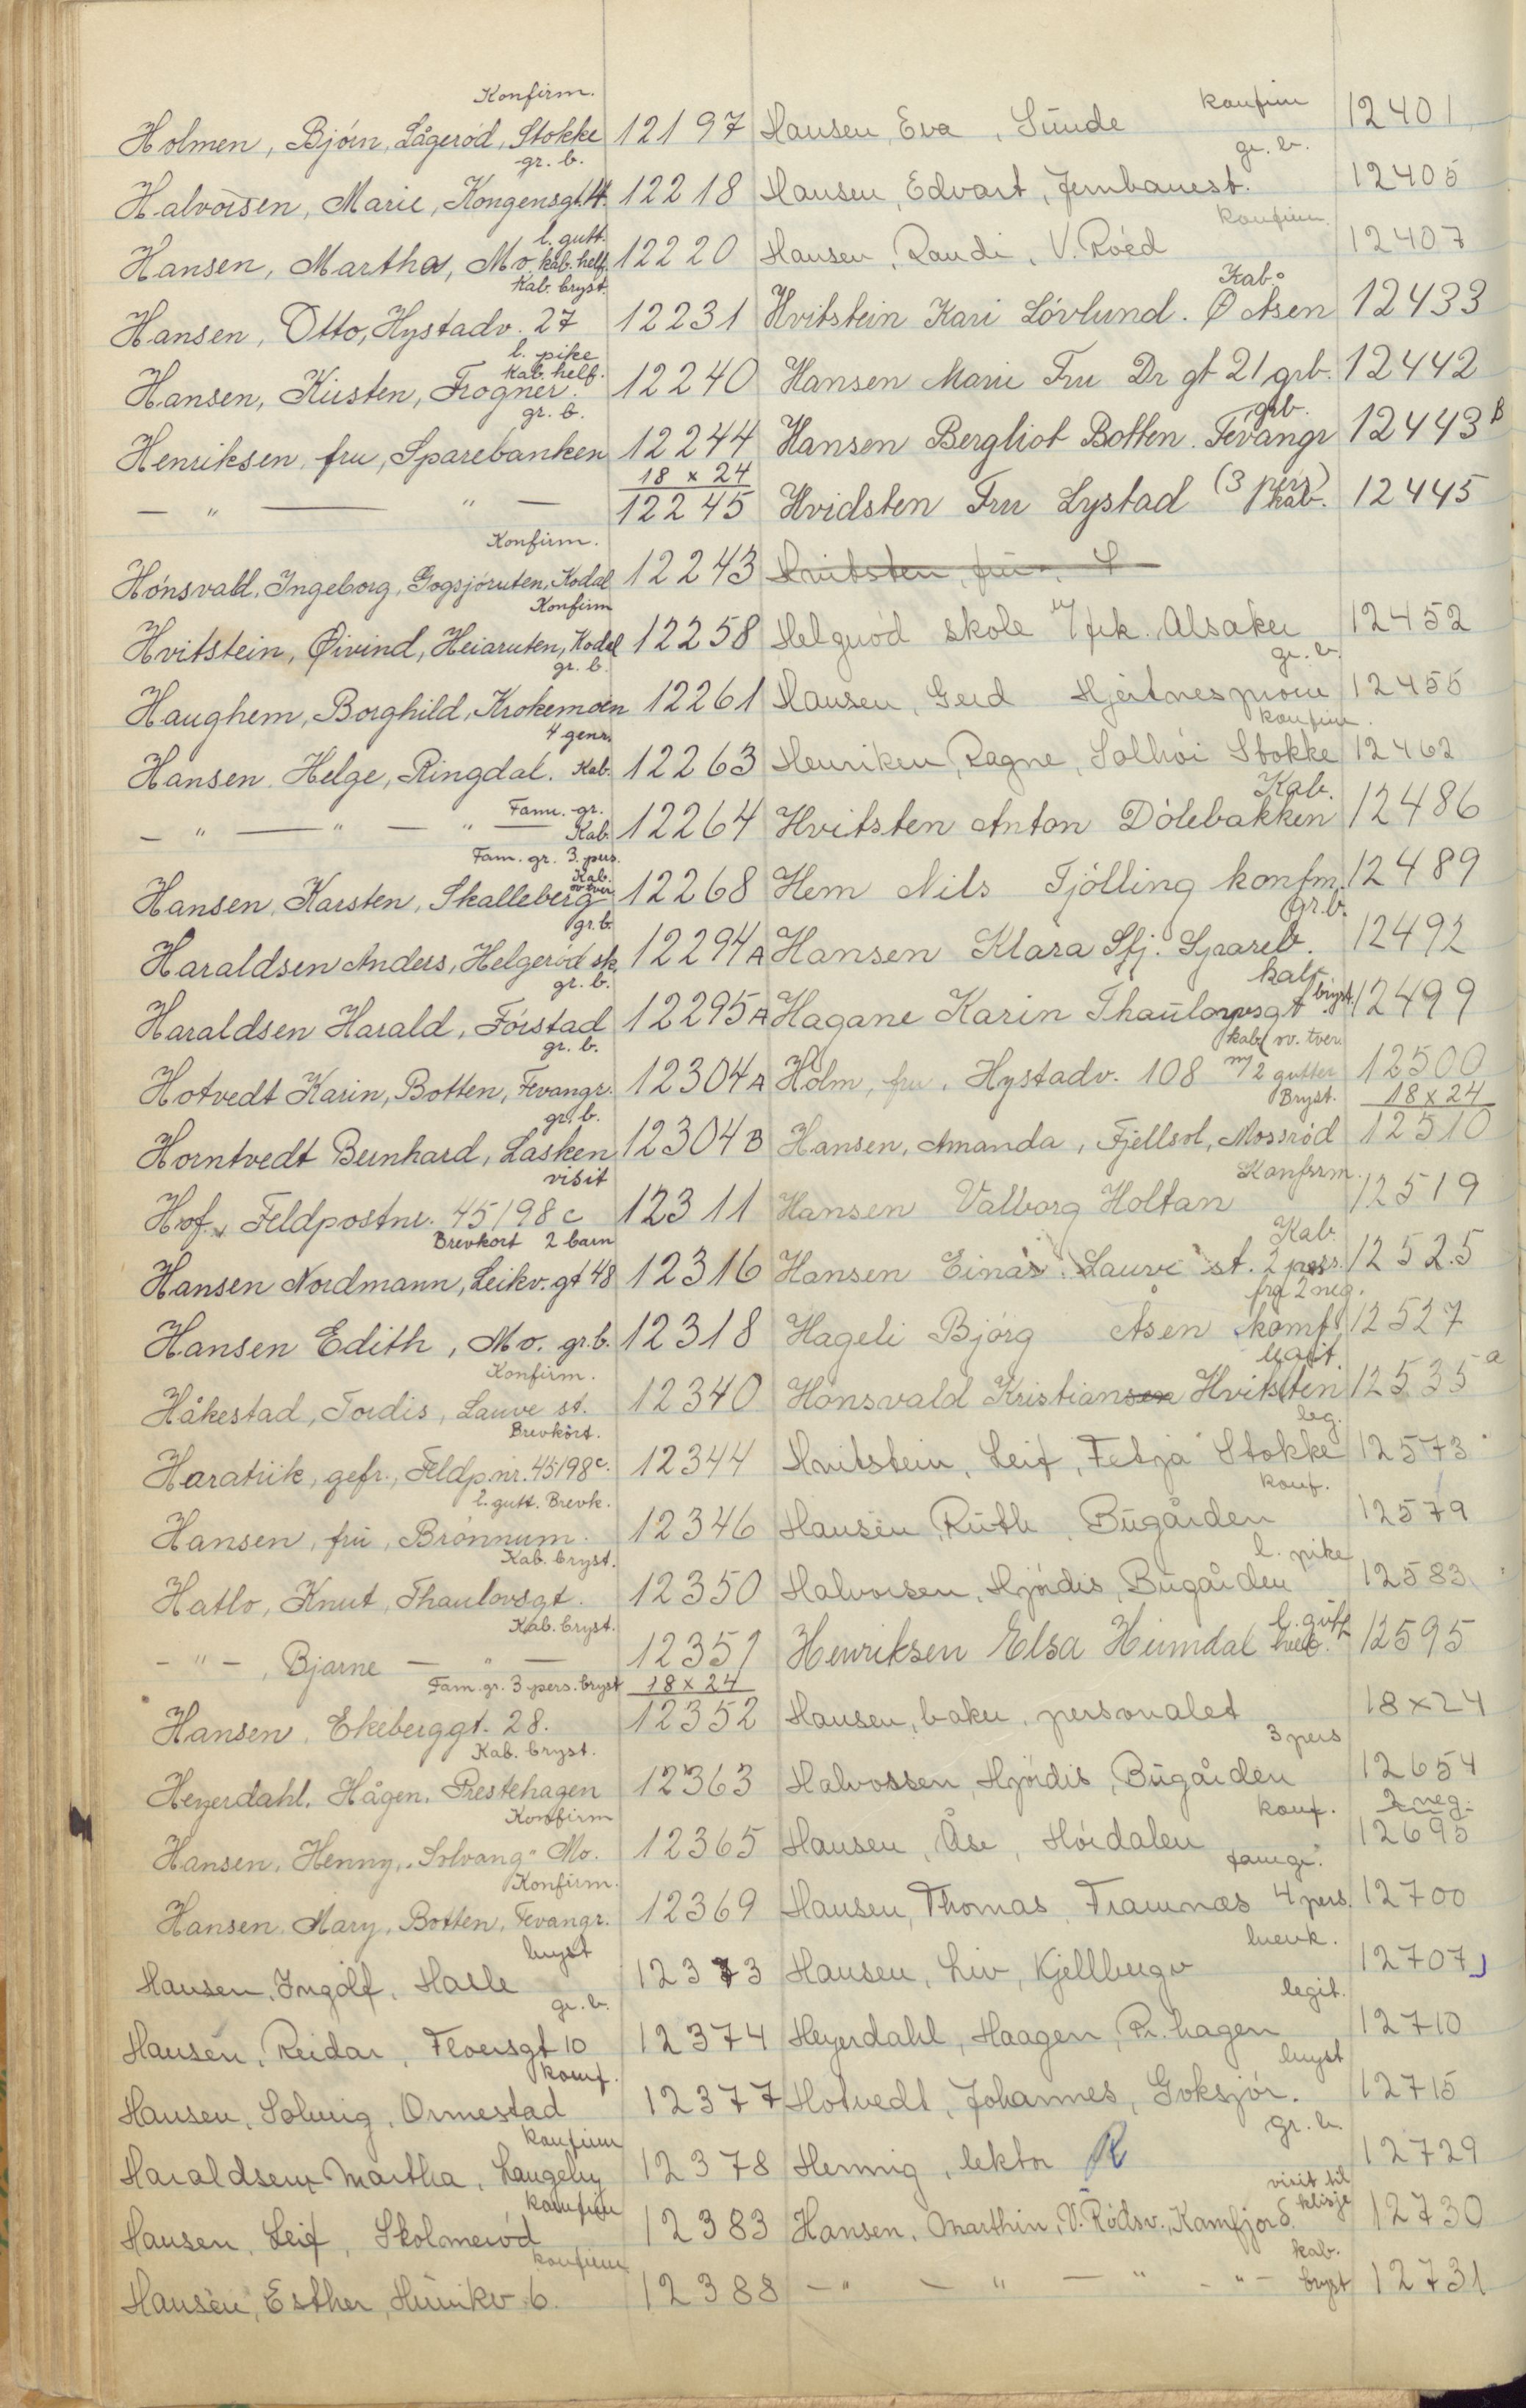 Konfirm.
Holmen, Bjørn, Lågerød, Stokke 12197
gr. b.
Halvorsen, Marie, Kongensgt. 12218
l. gutt.
Hansen, Martha, Mo. kab. helf. 12220
Kab. bryst.
Hansen, Otto, Hystadv. 27 12231
l. pike
Kab. helf.
Hansen, Kirsten, Frogner. 12240
gr. b.
Henriksen, fru, Sparebanken 12244
18 x 24
— " — " — 12245
Konfirm.
Hønsvald, Ingeborg, Gogsjøruten, Kodal 12243
Konfirm
Hvitstein, Øivind, Heiaruten, Kodal 12258
gr. b.
Haughem, Borghild, Krokemoen 12261
4 genr.
Hansen, Helge, Ringdal. Kab. 12263
Fam. gr.
— " — " — " — Kab. 12264
Fam. gr. 3. pers.
Kab.
ov. tver
Hansen, Karsten, Skalleberg 12268
gr. b.
Haraldsen Anders, Helgerød sk. 12294 A
gr. b.
Haraldsen Harald, Førstad 12295 A
gr. b.
Hotvedt Karin, Botten, Fevangr. 12304 A
gr. b.
Horntvedt Bernhard, Lasken 12304 B
visit
Hof., Feldpostnr. 45198 c 12311
Brevkort 2 barn
Hansen Nordmann, Leikv. gt 48 12316
Hansen Edith, Mo. gr. b. 12318
Konfirm.
Håkestad, Tordis, Lauve st. 12340
Brevkort.
Haratiik, gefr., Feldp.nr. 45198 c. 12344
l. gutt. Brevk.
Hansen, fru, Brønnum. 12346
Kab. bryst.
Hatlo, Knut, Thaulovsgt. 12350
Kab. bryst.
- " - , Bjarne — " — 12351
Fam. gr. 3 pers. bryst 18 x 24
Hansen, Ekeberggt. 28. 12352
Kab. bryst.
Heyerdahl, Hågen, Prestehagen 12363
Konfirm
Hansen, Henny, "Solvang" Mo. 12365
Konfirm.
Hansen, Mary, Botten, Fevangr. 12369
bryst
Hansen, Ingolf, Hasle 12373
gr. b.
Hansen, Reidar, Floersgt 10 12374
konf.
Hansen, Solveig, Ormestad 12377
konfirm
Haraldsen Martha, Langeby 12378
konfirm
Hansen, Leif, Skolmerød 12383
konfirm
Hansen, Esther, Hunikv. 6. 12388
konfirm
Hansen, Eva, Sunde 12401
gr. b.
Hansen, Edvart, Jernbanest. 12405
konfirm
Hansen, Randi, V. Røed 12407
Kab.
Hvitstein Kari Løvlund. Ø Åsen 12433
Hansen Marie Fru Dr gt 21 grb. 12442
grb.
Hansen Bergliot Botten. Fevangr 12443 B
Hvidsten Fru Lystad (3 pers) kab. 12445
Hvitsten, fru
Helgerød skole m/ frk. Alsaker 12452
gr. b.
Hansen, Gerd Hjertnesprom 12455
konfirm.
Henriken, Ragne, Solhøi Stokke 12462
Kab.
Hvitsten Anton Dølebakken 12486
Hem Nils Tjølling konfm. 12489
gr. b.
Hansen Klara Sfj. Spareb. 12492
kab. bryst.
Hagane Karin Thaulowsgt 12499
kab. ov. tver.
Holm, fru, Hystadv. 108 m/ 2 gutter 12500
Bryst. 18 x 24
Hansen, Amanda, Fjellsol, Mossrød 12510
Konfirm.
Hansen Valborg Holtan 12519
Kab.
Hansen Einar Lauve st. 2 pers. 12525
fra 2 neg.
Hageli Bjørg Åsen konf. 12527
legit.
Hønsvald Kristiansen Hvitsten 12535 a
leg.
Hvitstein, Leif, Fetja Stokke 12573
konf.
Hansen, Ruth, Bugården 12579
l. pike
Halvorsen, Hjørdis, Bugården 12583
l. gutt
Henriksen Elsa Heimdal 12595
Hansen, baker, personalet 18x24
3 pers
Halvossen, Hjørdis, Bugården 12654
konf. 2 neg.
Hansen, Åse, Hørdalen 12695
famgr.
Hansen, Thomas, Framnæs 4 pers. 12700
brevk.
Hansen, Liv, Kjellbergv 12707
legit.
Heyerdahl, Haagen, Pr. hagen 12710
bryst
Hotvedt, Johannes, Goksjør. 12715
gr. b.
Hennig, lektor R 12729
visit til
klisje
Hansen, Marthin, V. Rødsv., Kamfjord. 12730
kab.
— " — " — " — " — bryst 12731